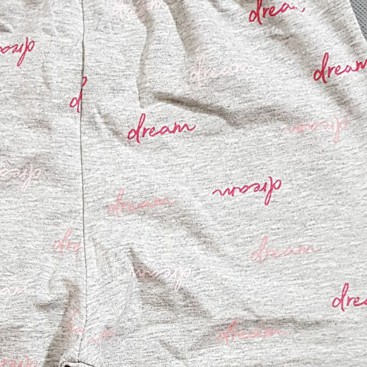 dream
dream
dream
dream
dream
dream
dream
dream
dream
dream
dream
dream
dream